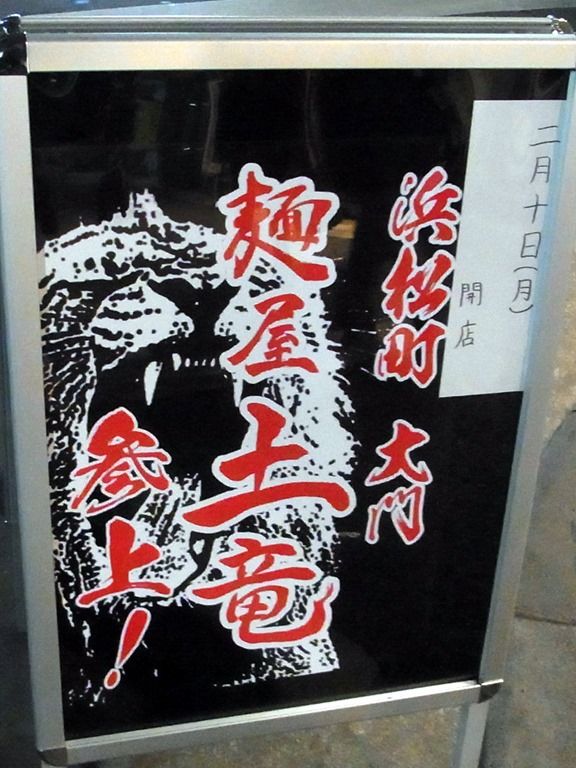 二月十日(月)
開店
浜松町 大門
麺屋土竜
参上!